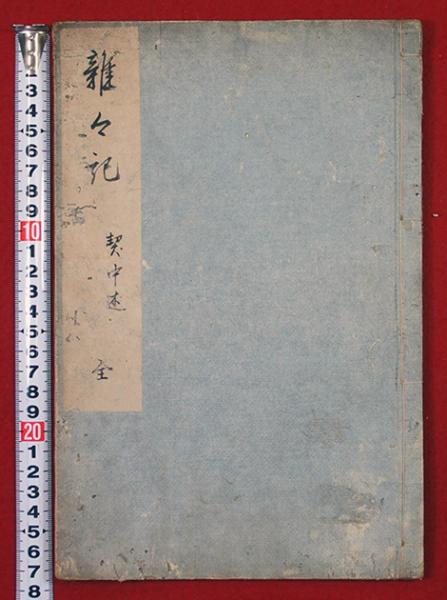 雜々記
契中述
全
3
4
5
6
7
8
9
10
1
2
3
4
5
6
7
8
9
20
1
2
3
4
5
6
7
8